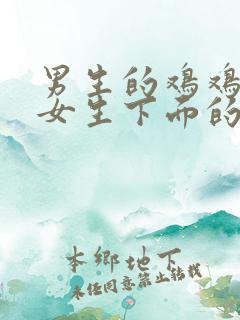 男生的鸡鸡
女生下面的
本鄉地下
未經同意禁止转载